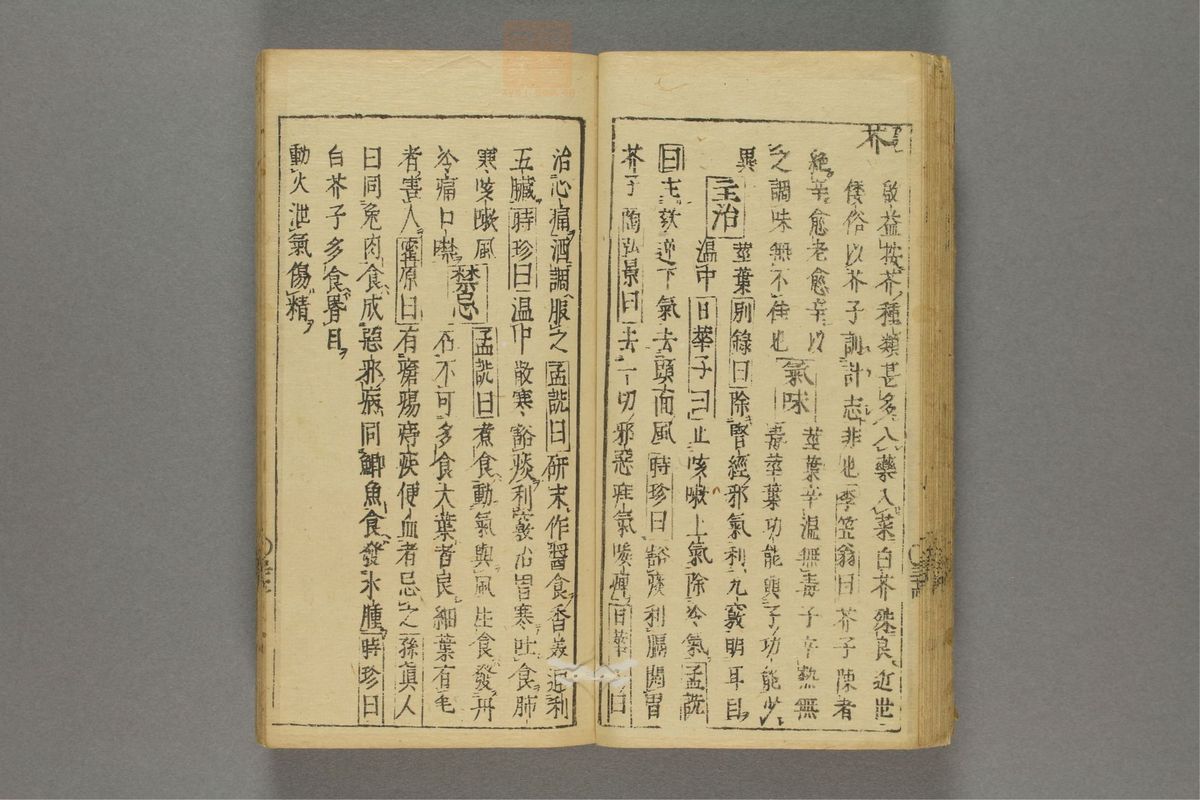 芥
啟益按芥種類甚多入藥入菜白芥殊良近世
倭俗以芥子訓計志非也李笠翁曰芥子陳者
絕辛愈老愈辛以
之調味無不佳也 氣味 莖葉辛溫無毒子辛熱無
毒莖葉功能與子功能少
異 主治 莖葉別錄曰除腎經邪氣利九竅明耳目
溫中日華子曰止咳嗽上氣除冷氣孟詵
曰主欬逆下氣去頭面風時珍曰豁痰利膈開胃
芥子陶弘景曰去一切邪惡疰氣喉痺日華子曰
治心痛酒調服之孟詵曰研末作醬食香美通利
五臟時珍曰溫中散寒豁痰利竅治胃寒吐食肺
寒咳嗽風
冷痛口噤 禁忌 孟詵曰煮食動氣與風生食發丹
石不可多食大葉者良細葉有毛
者害人甯原曰有瘡瘍痔疾便血者忌之孫眞人
曰同兔肉食成惡邪病同鯽魚食發水腫時珍曰
白芥子多食昬目
動火泄氣傷精